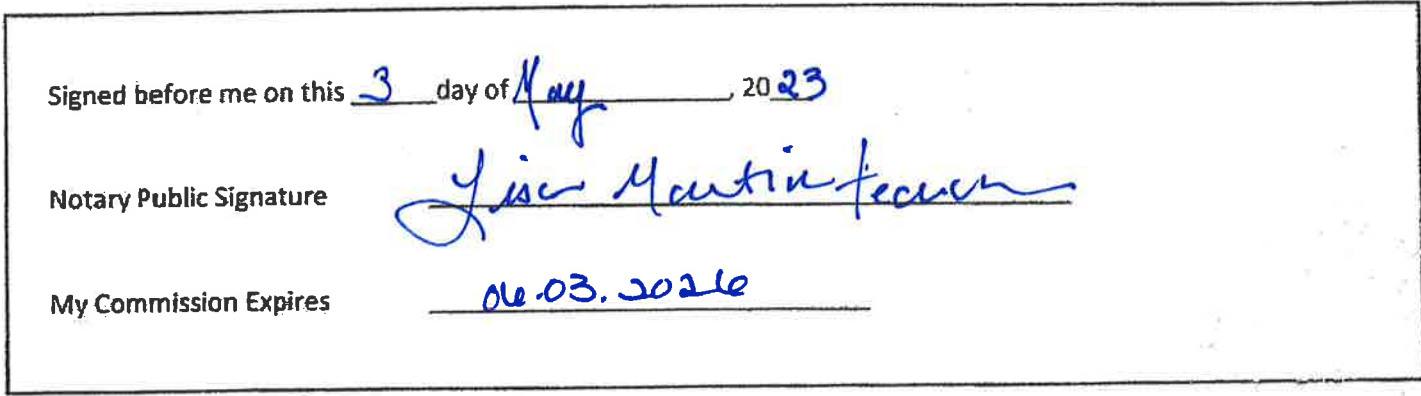 Signed before me on this 3 day of May, 2023
Notary Public Signature Lisa Martin
My Commission Expires 06.03.2026